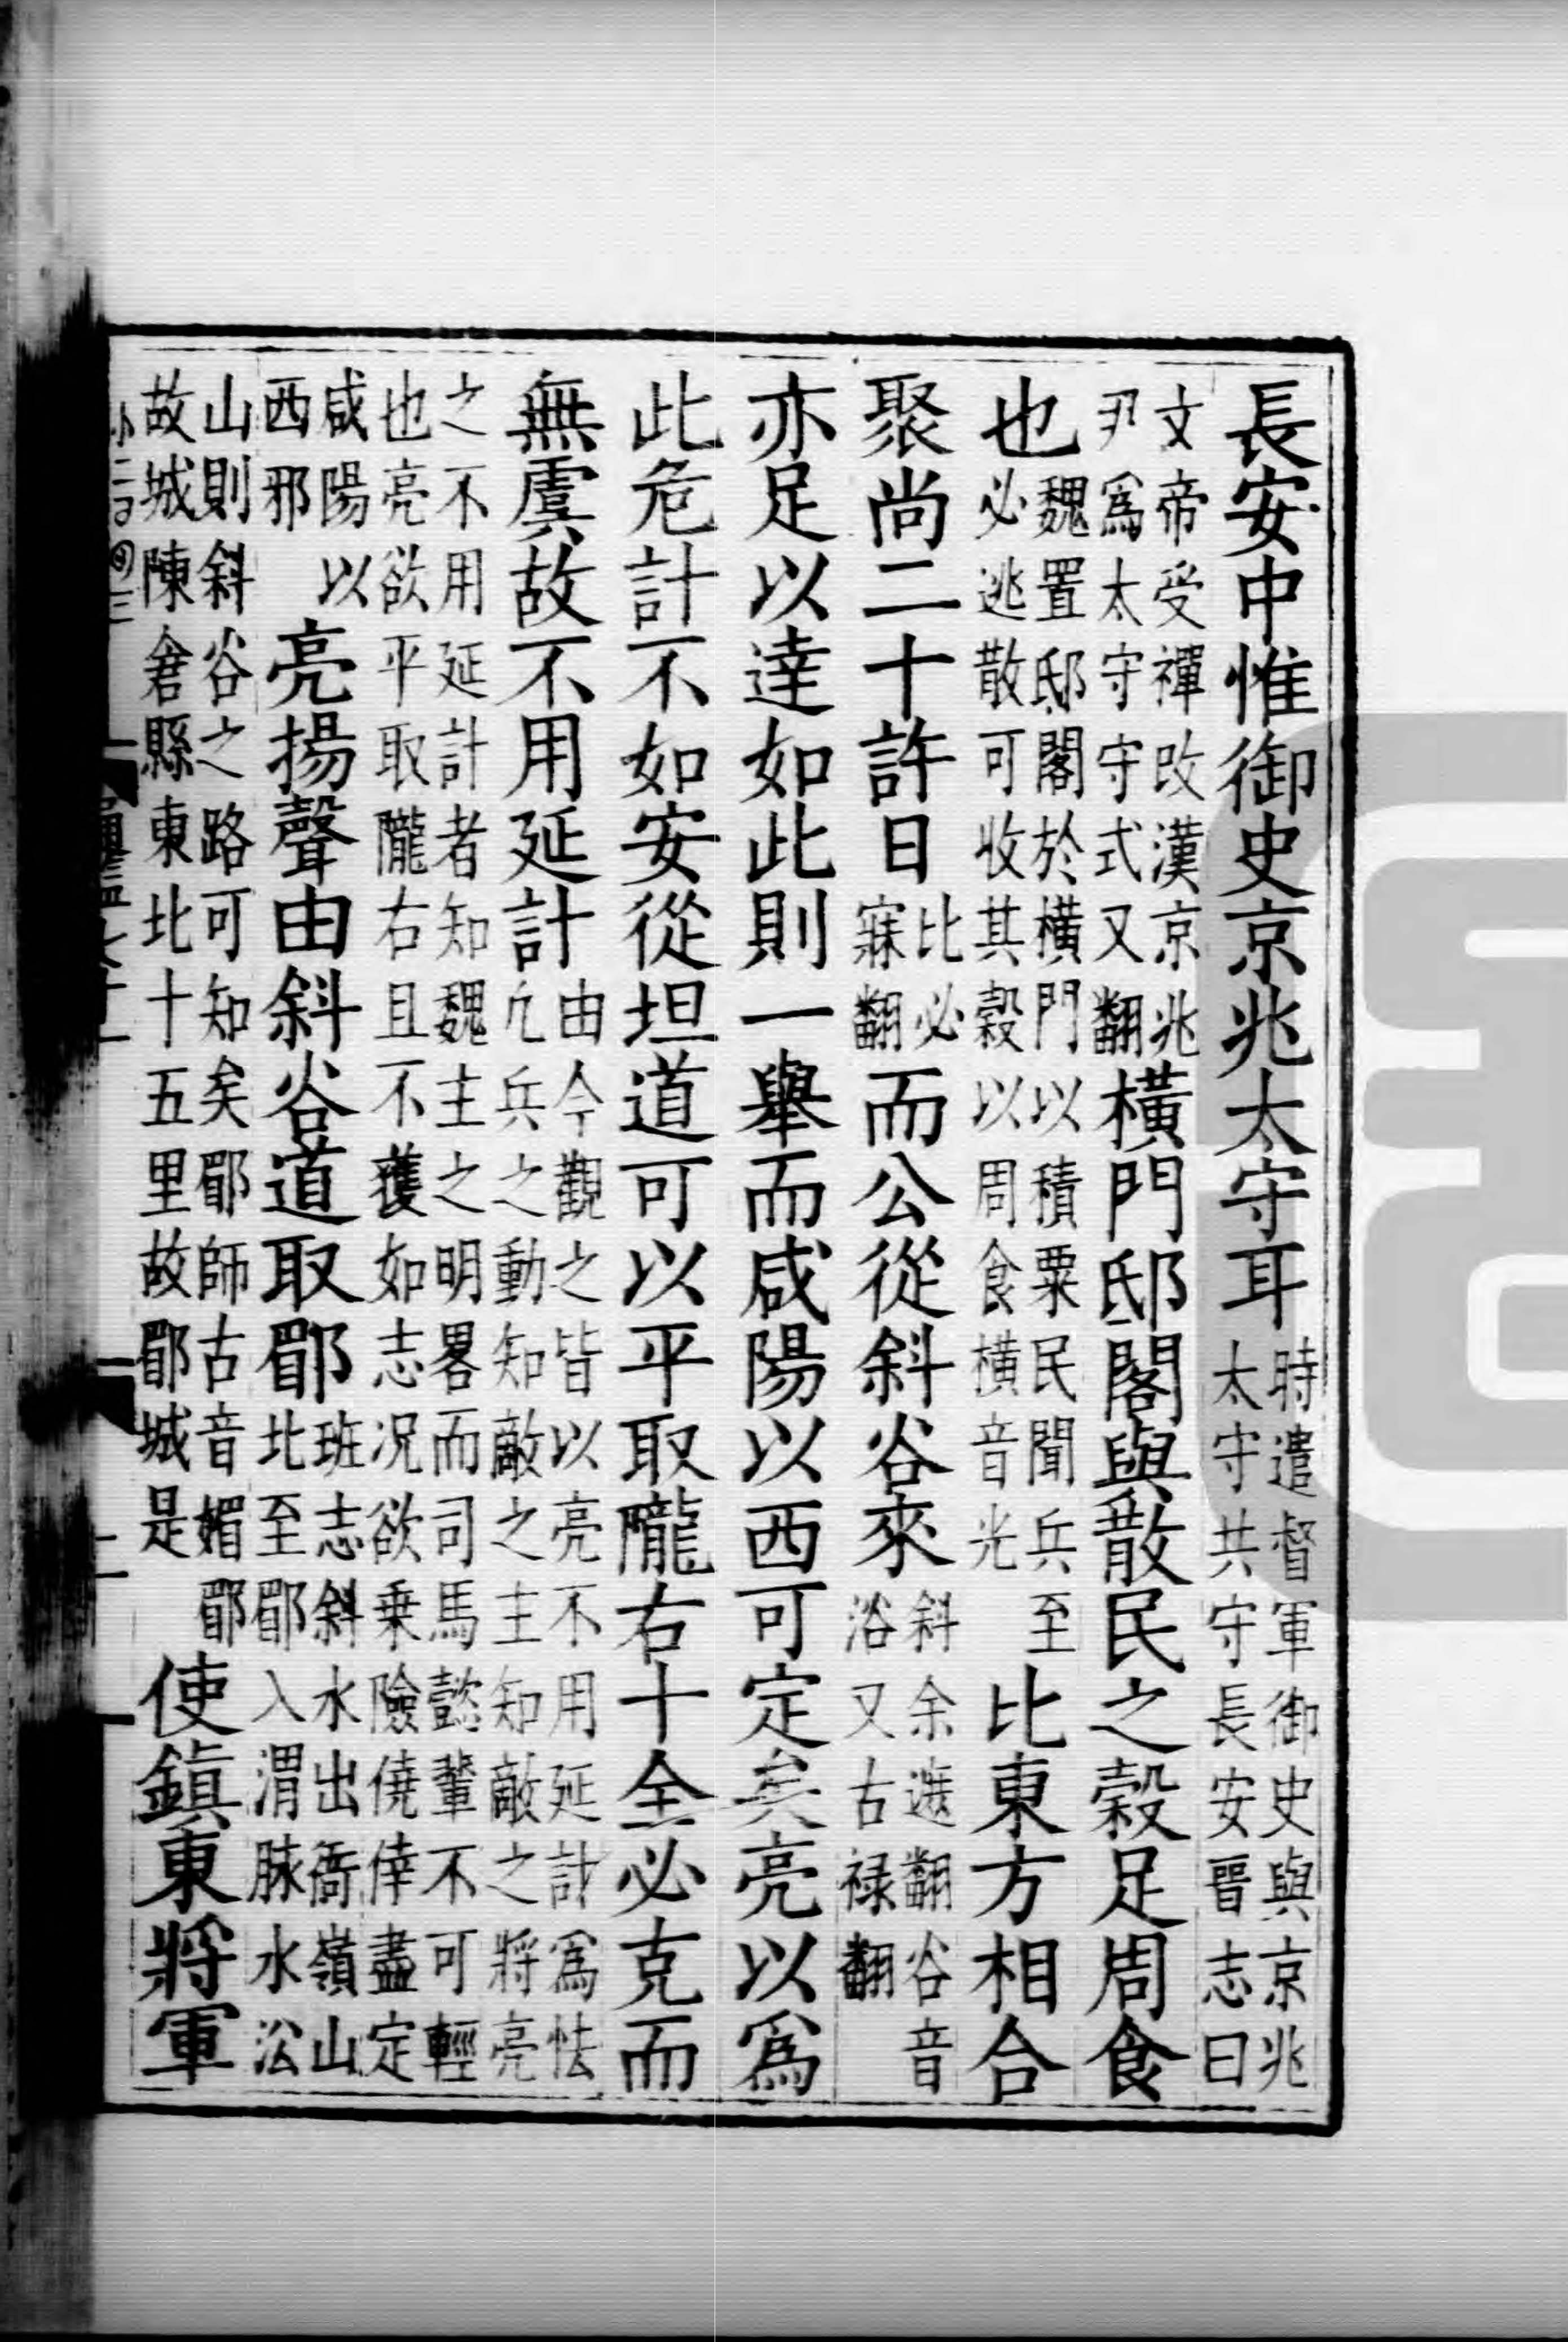 長安中惟御史京兆太守耳時遣督軍御史與京兆太守共守長安晉志曰
文帝受禪改漢京兆尹爲太守守式又翻橫門邸閣與散民之穀足周食
也魏置邸閣於橫門以積粟民聞兵至必逃散可收其穀以周食橫音光比東方相合
聚尚二十許日比必寐翻而公從斜谷來斜余遮翻谷音浴又古祿翻
亦足以達如此則一舉而咸陽以西可定矣亮以爲
此危計不如安從坦道可以平取隴右十全必克而
無虞故不用延計由今觀之皆以亮不用延計爲怯凢兵之動知敵之主知敵之將亮
之不用延計者知魏主之明畧而司馬懿輩不可輕也亮欲平取隴右且不獲如志况欲乗險僥倖盡定
咸陽以西邪亮揚聲由斜谷道取郿班志斜水出衙嶺山北至郿入渭脉水㳂
山則斜谷之路可知矣郿師古音媚郿故城陳倉縣東北十五里故郿城是使鎭東將軍